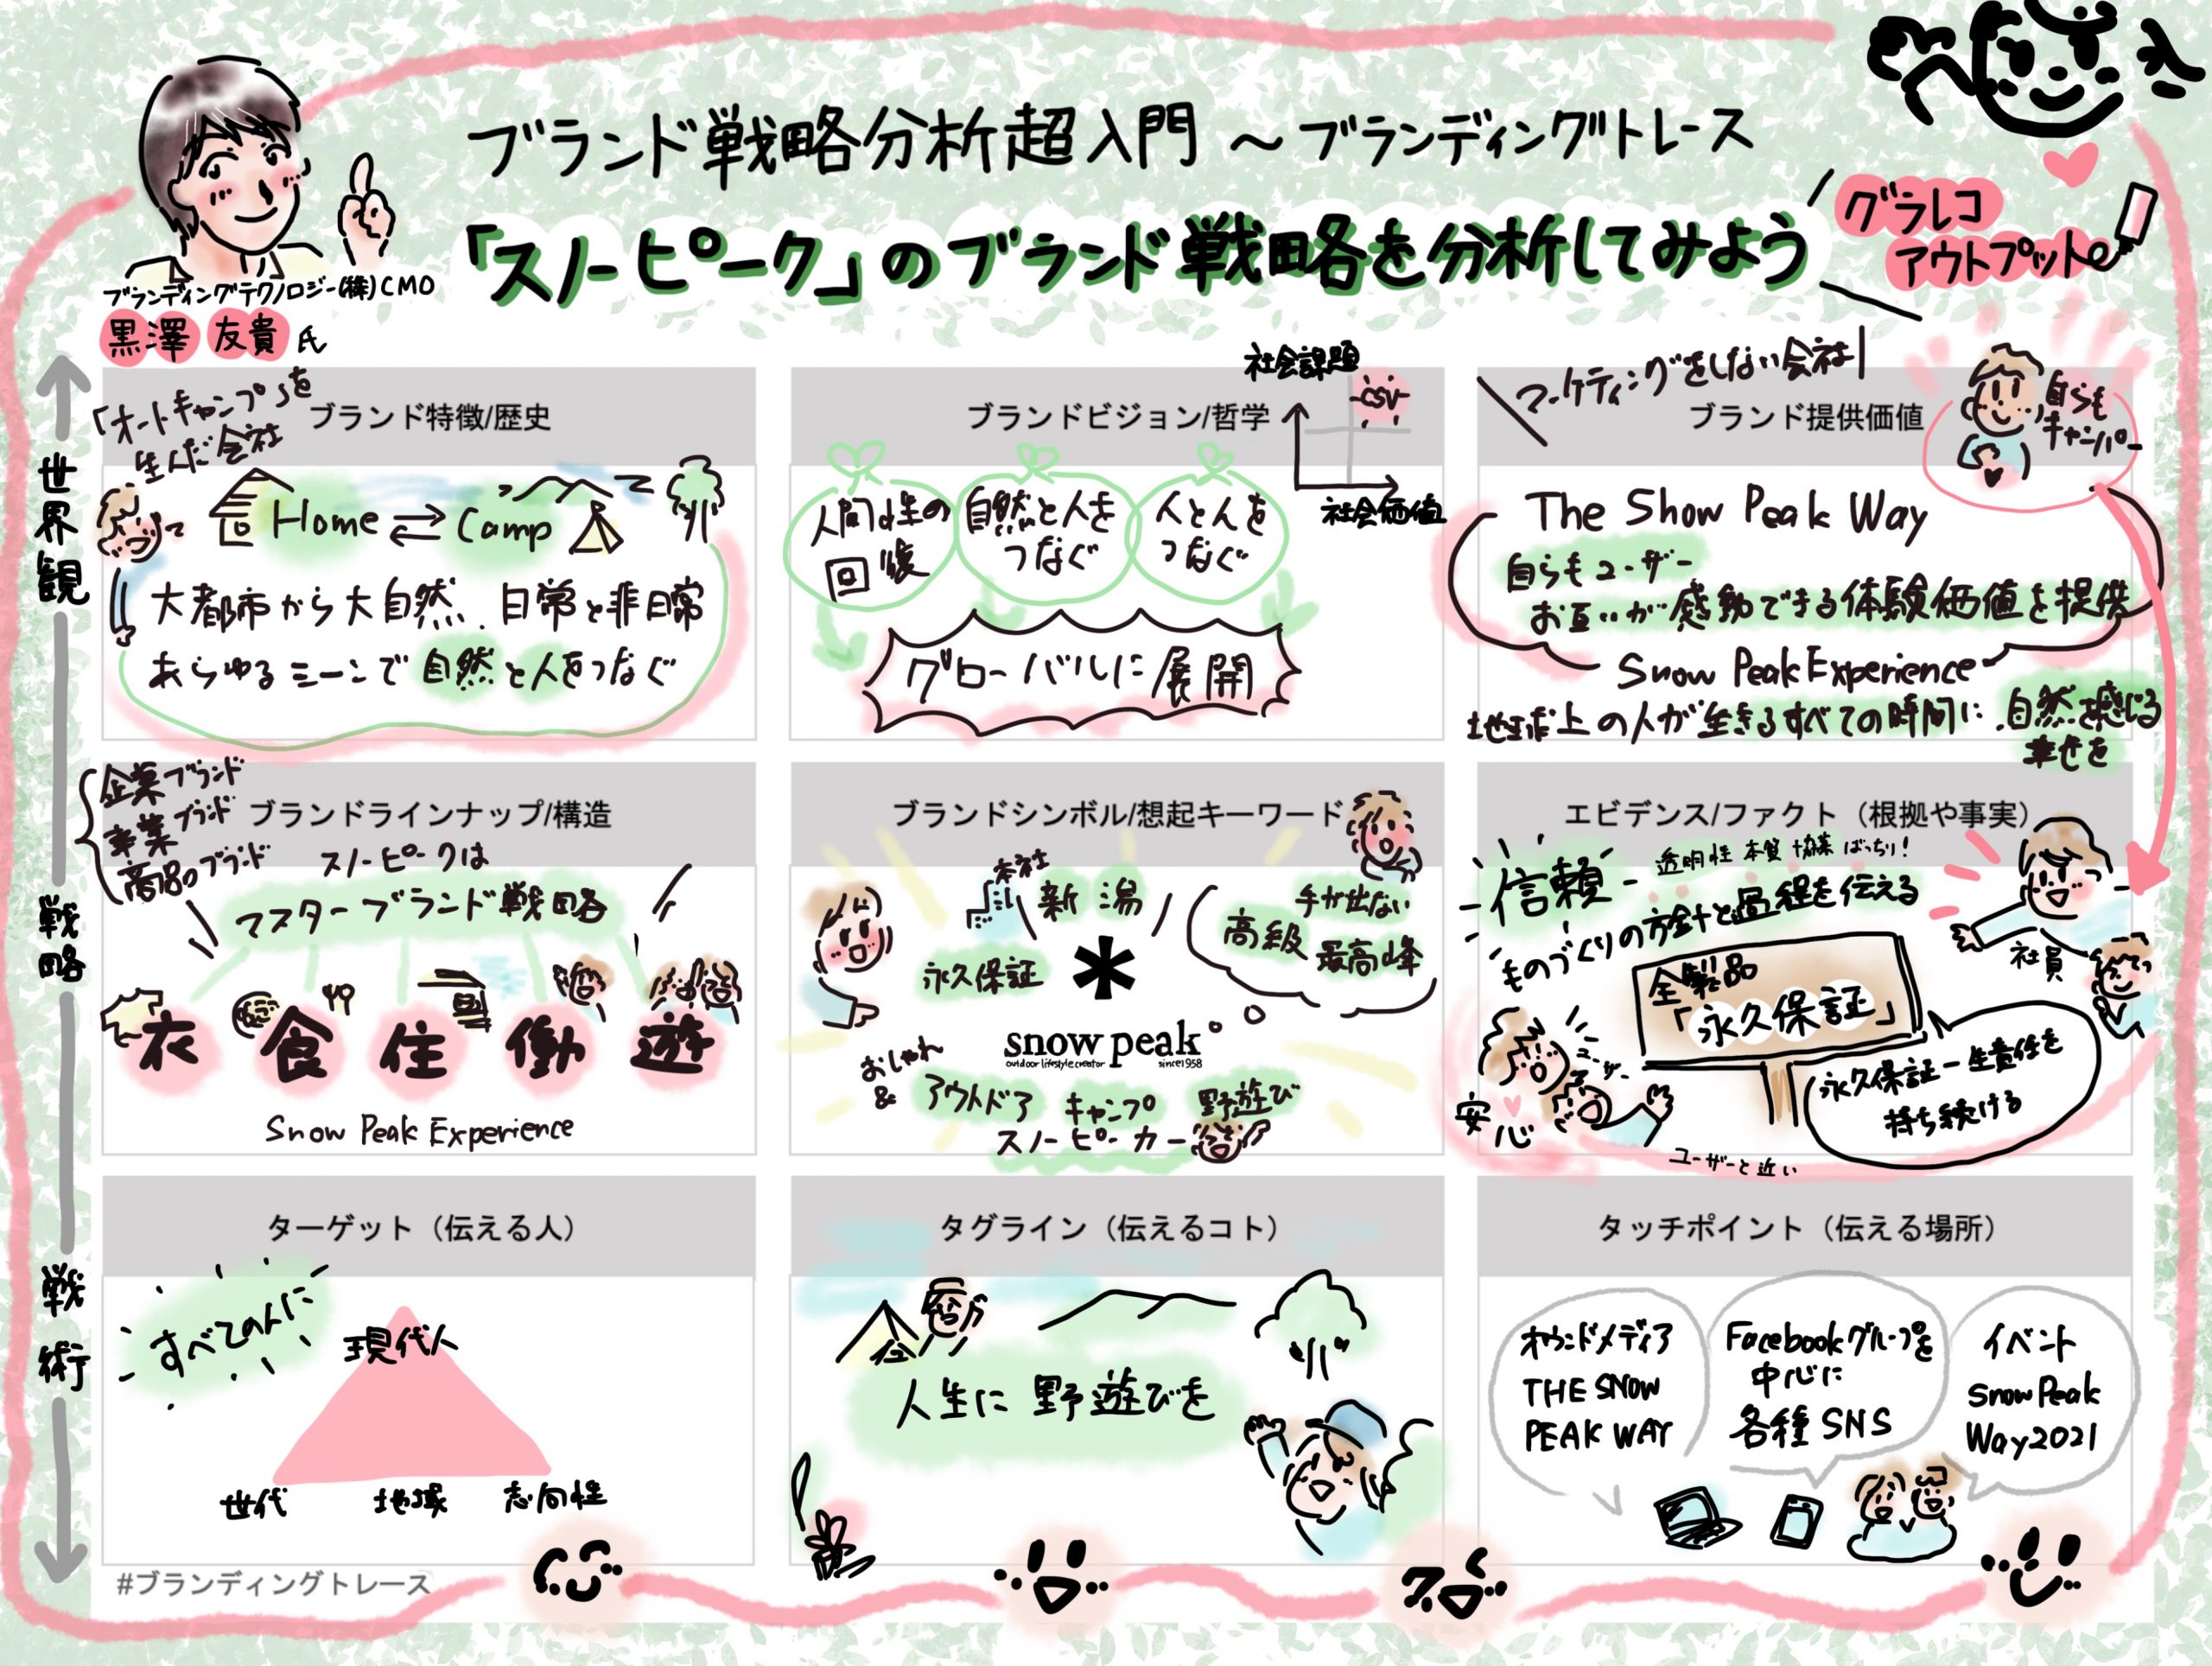 ブランド戦略分析超入門 ～ブランディングトレース
「スノーピーク」のブランド戦略を分析してみよう
グラレコ
アウトプット
ブランディングテクノロジー(株)CMO
黒澤 友貴 氏
世界観
戦略
戦術
「オートキャンプ」を
生んだ会社
ブランド特徴/歴史
Home ⇄ Camp
大都市から大自然、日常と非日常
あらゆるシーンで自然と人をつなぐ
ブランドビジョン/哲学
社会課題
CSV
社会価値
人間性の
回復
自然と人を
つなぐ
人と人を
つなぐ
グローバルに展開
マーケティングをしない会社
ブランド提供価値
自らも
キャンパー
The Show Peak Way
自らもユーザー
お互いが感動できる体験価値を提供
Snow Peak Experience
地球上の人が生きるすべての時間に、自然を感じる
幸せを
企業ブランド
事業ブランド
商品ブランド
ブランドラインナップ/構造
スノーピークは
マスターブランド戦略
衣 食 住 働 遊
Snow Peak Experience
ブランドシンボル/想起キーワード
本社
新潟
永久保証
手が出ない
高級 最高峰
snow peak
outdoor lifestyle creator since1958
おしゃれ
&
アウトドア キャンプ 野遊び
スノーピーカー
エビデンス/ファクト（根拠や事実）
信頼
透明性 本質 協業 ばっちり!
ものづくりの方針と過程を伝える
社員
全製品
「永久保証」
ユーザー
安心
永久保証一生責任を
持ち続ける
ユーザーと近い
ターゲット（伝える人）
すべての人に
現代人
世代 地域 志向性
タグライン（伝えるコト）
人生に 野遊びを
タッチポイント（伝える場所）
オウンドメディア
THE SNOW
PEAK WAY
Facebookグループを
中心に
各種SNS
イベント
Snow Peak
Way2021
#ブランディングトレース